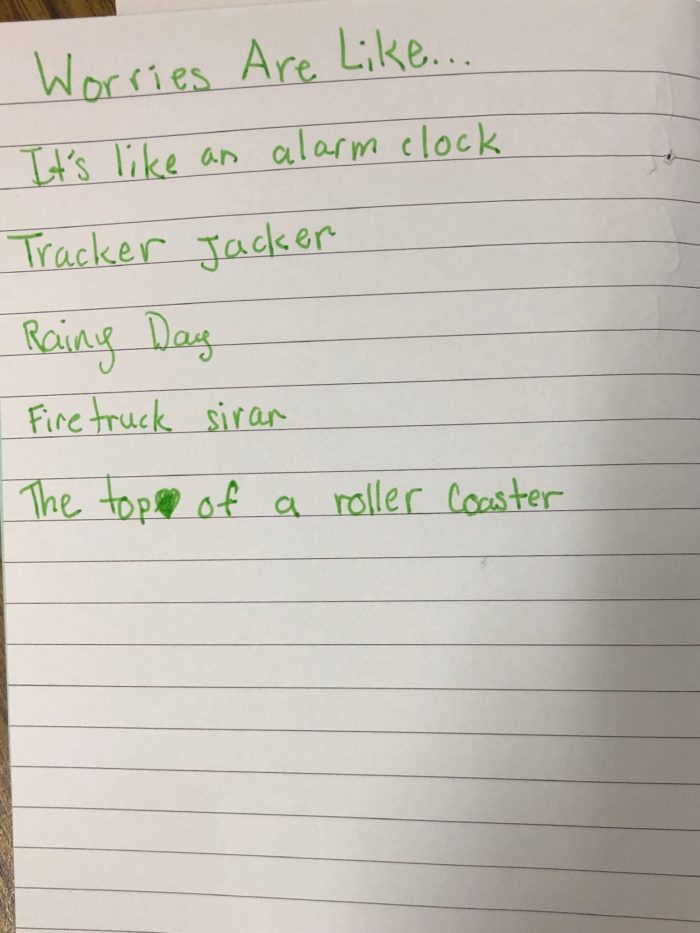 Worries Are Like...
It's like an alarm clock
Tracker Jacker
Rainy Day
Firetruck siran
The top of a roller Coaster